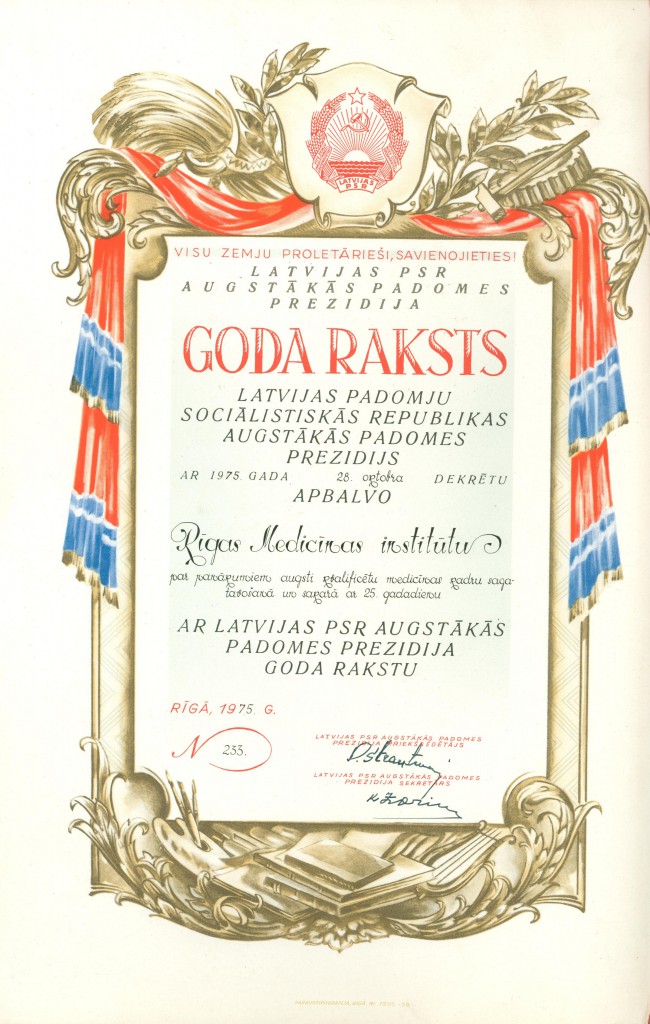 LATVIJAS
PSR
VISU ZEMJU PROLETĀRIEŠI, SAVIENOJIETIES!
LATVIJAS PSR
AUGSTĀKĀS PADOMES
PREZIDIJA
GODA RAKSTS
LATVIJAS PADOMJU
SOCIĀLISTISKĀS REPUBLIKAS
AUGSTĀKĀS PADOMES
PREZIDIJS
AR 1975. GADA 28. oktobra DEKRĒTU
APBALVO
Rīgas Medicīnas institūtu
par panākumiem augsti kvalificētu medicīnas kadru saga-
tavošanā un sakarā ar 25. gadadienu
AR LATVIJAS PSR AUGSTĀKĀS
PADOMES PREZIDIJA
GODA RAKSTU
RĪGĀ, 1975. G.
N 233.
LATVIJAS PSR AUGSTĀKĀS PADOMES
PREZIDIJA PRIEKŠSĒDĒTĀJS
LATVIJAS PSR AUGSTĀKĀS PADOMES
PREZIDIJA SEKRETĀRS